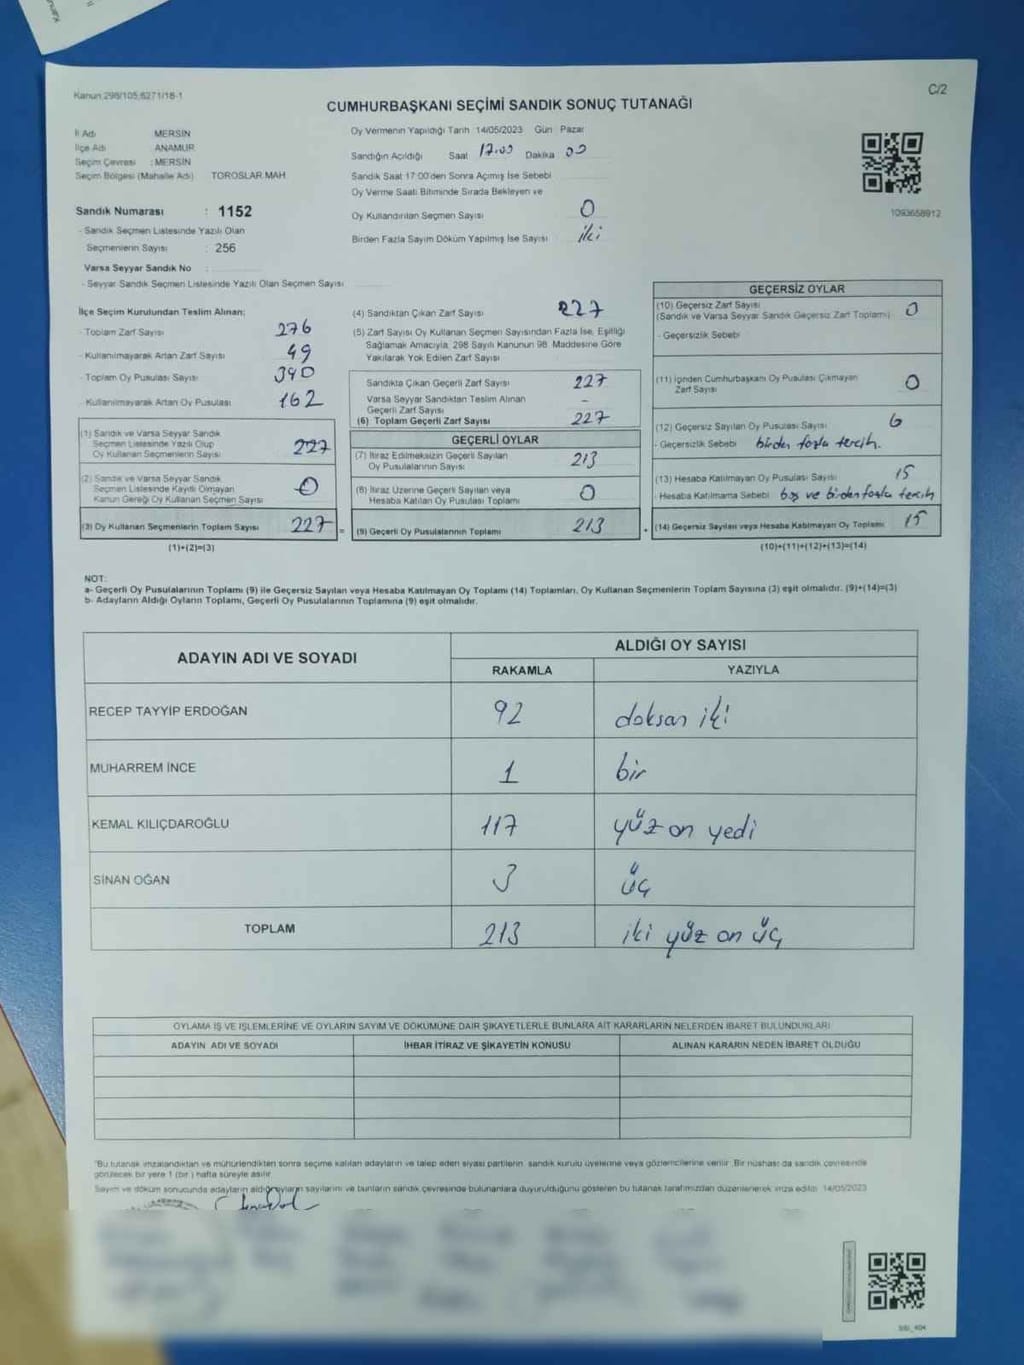 Kanun 298/105,6271/18-1
C/2
CUMHURBAŞKANI SEÇİMİ SANDIK SONUÇ TUTANAĞI
İl Adı MERSİN
İlçe Adı ANAMUR
Seçim Çevresi : MERSİN
Seçim Bölgesi (Mahalle Adı) TOROSLAR MAH
Sandık Numarası : 1152
- Sandık Seçmen Listesinde Yazılı Olan
Seçmenlerin Sayısı : 256
Varsa Seyyar Sandık No
- Seyyar Sandık Seçmen Listesinde Yazılı Olan Seçmen Sayısı
Oy Vermenin Yapıldığı Tarih 14/05/2023 Gün Pazar
Sandığın Açıldığı Saat 17.00 Dakika 00
Sandık Saat 17:00'den Sonra Açımış İse Sebebi
Oy Verme Saati Bitiminde Sırada Bekleyen ve
Oy Kullandırılan Seçmen Sayısı 0
Birden Fazla Sayım Döküm Yapılmış İse Sayısı iki
1093658912
İlçe Seçim Kurulundan Teslim Alınan;
- Toplam Zarf Sayısı 276
- Kullanılmayarak Artan Zarf Sayısı 49
- Toplam Oy Pusulası Sayısı 390
- Kullanılmayarak Artan Oy Pusulası 162
(1) Sandık ve Varsa Seyyar Sandık
Seçmen Listesinde Yazılı Olup
Oy Kullanan Seçmenlerin Sayısı 227
(2) Sandık ve Varsa Seyyar Sandık
Seçmen Listesinde Kayıtlı Olmayan
Kanun Gereği Oy Kullanan Seçmen Sayısı 0
(3) Oy Kullanan Seçmenlerin Toplam Sayısı 227 =
(1)+(2)=(3)
(4) Sandıktan Çıkan Zarf Sayısı 227
(5) Zarf Sayısı Oy Kullanan Seçmen Sayısından Fazla İse, Eşitliği
Sağlamak Amacıyla, 298 Sayılı Kanunun 98. Maddesine Göre
Yakılarak Yok Edilen Zarf Sayısı
Sandıkta Çıkan Geçerli Zarf Sayısı 227
Varsa Seyyar Sandıktan Teslim Alınan
Geçerli Zarf Sayısı -
(6) Toplam Geçerli Zarf Sayısı 227
GEÇERLİ OYLAR
(7) İtiraz Edilmeksizin Geçerli Sayılan
Oy Pusulalarının Sayısı 213
(8) İtiraz Üzerine Geçerli Sayılan veya
Hesaba Katılan Oy Pusulası Toplamı 0
(9) Geçerli Oy Pusulalarının Toplamı 213
GEÇERSİZ OYLAR
(10) Geçersiz Zarf Sayısı
(Sandık ve Varsa Seyyar Sandık Geçersiz Zarf Toplamı) 0
- Geçersizlik Sebebi
(11) İçinden Cumhurbaşkanı Oy Pusulası Çıkmayan
Zarf Sayısı 0
(12) Geçersiz Sayılan Oy Pusulası Sayısı 6
- Geçersizlik Sebebi birden fazla tercih.
(13) Hesaba Katılmayan Oy Pusulası Sayısı 15
Hesaba Katılmama Sebebi boş ve birden fazla tercih
(14) Geçersiz Sayılan veya Hesaba Katılmayan Oy Toplamı 15
(10)+(11)+(12)+(13)=(14)
NOT:
a- Geçerli Oy Pusulalarının Toplamı (9) ile Geçersiz Sayılan veya Hesaba Katılmayan Oy Toplamı (14) Toplamları, Oy Kullanan Seçmenlerin Toplam Sayısına (3) eşit olmalıdır. (9)+(14)=(3)
b- Adayların Aldığı Oyların Toplamı, Geçerli Oy Pusulalarının Toplamına (9) eşit olmalıdır.
ADAYIN ADI VE SOYADI ALDIĞI OY SAYISI
RAKAMLA YAZIYLA
RECEP TAYYİP ERDOĞAN 92 doksan iki
MUHARREM İNCE 1 bir
KEMAL KILIÇDAROĞLU 117 yüz on yedi
SİNAN OĞAN 3 üç
TOPLAM 213 iki yüz on üç
OYLAMA İŞ VE İŞLEMLERİNE VE OYLARIN SAYIM VE DÖKÜMÜNE DAİR ŞİKAYETLERLE BUNLARA AİT KARARLARIN NELERDEN İBARET BULUNDUKLARI
ADAYIN ADI VE SOYADI İHBAR İTİRAZ VE ŞİKAYETİN KONUSU ALINAN KARARIN NEDEN İBARET OLDUĞU
"Bu tutanak imzalandıktan ve mühürlendikten sonra seçime katılan adayların ve talep eden siyasi partilerin sandık kurulu üyelerine veya gözlemcilerine verilir. Bir nüshası da sandık çevresinde
görülecek bir yere 1 (bir) hafta süreyle asılır.
Sayım ve döküm sonucunda adayların aldığı oyların sayılarını ve bunların sandık çevresinde bulunanlara duyurulduğunu gösteren bu tutanak tarafımızdan düzenlenerek imza edildi 14/05/2023